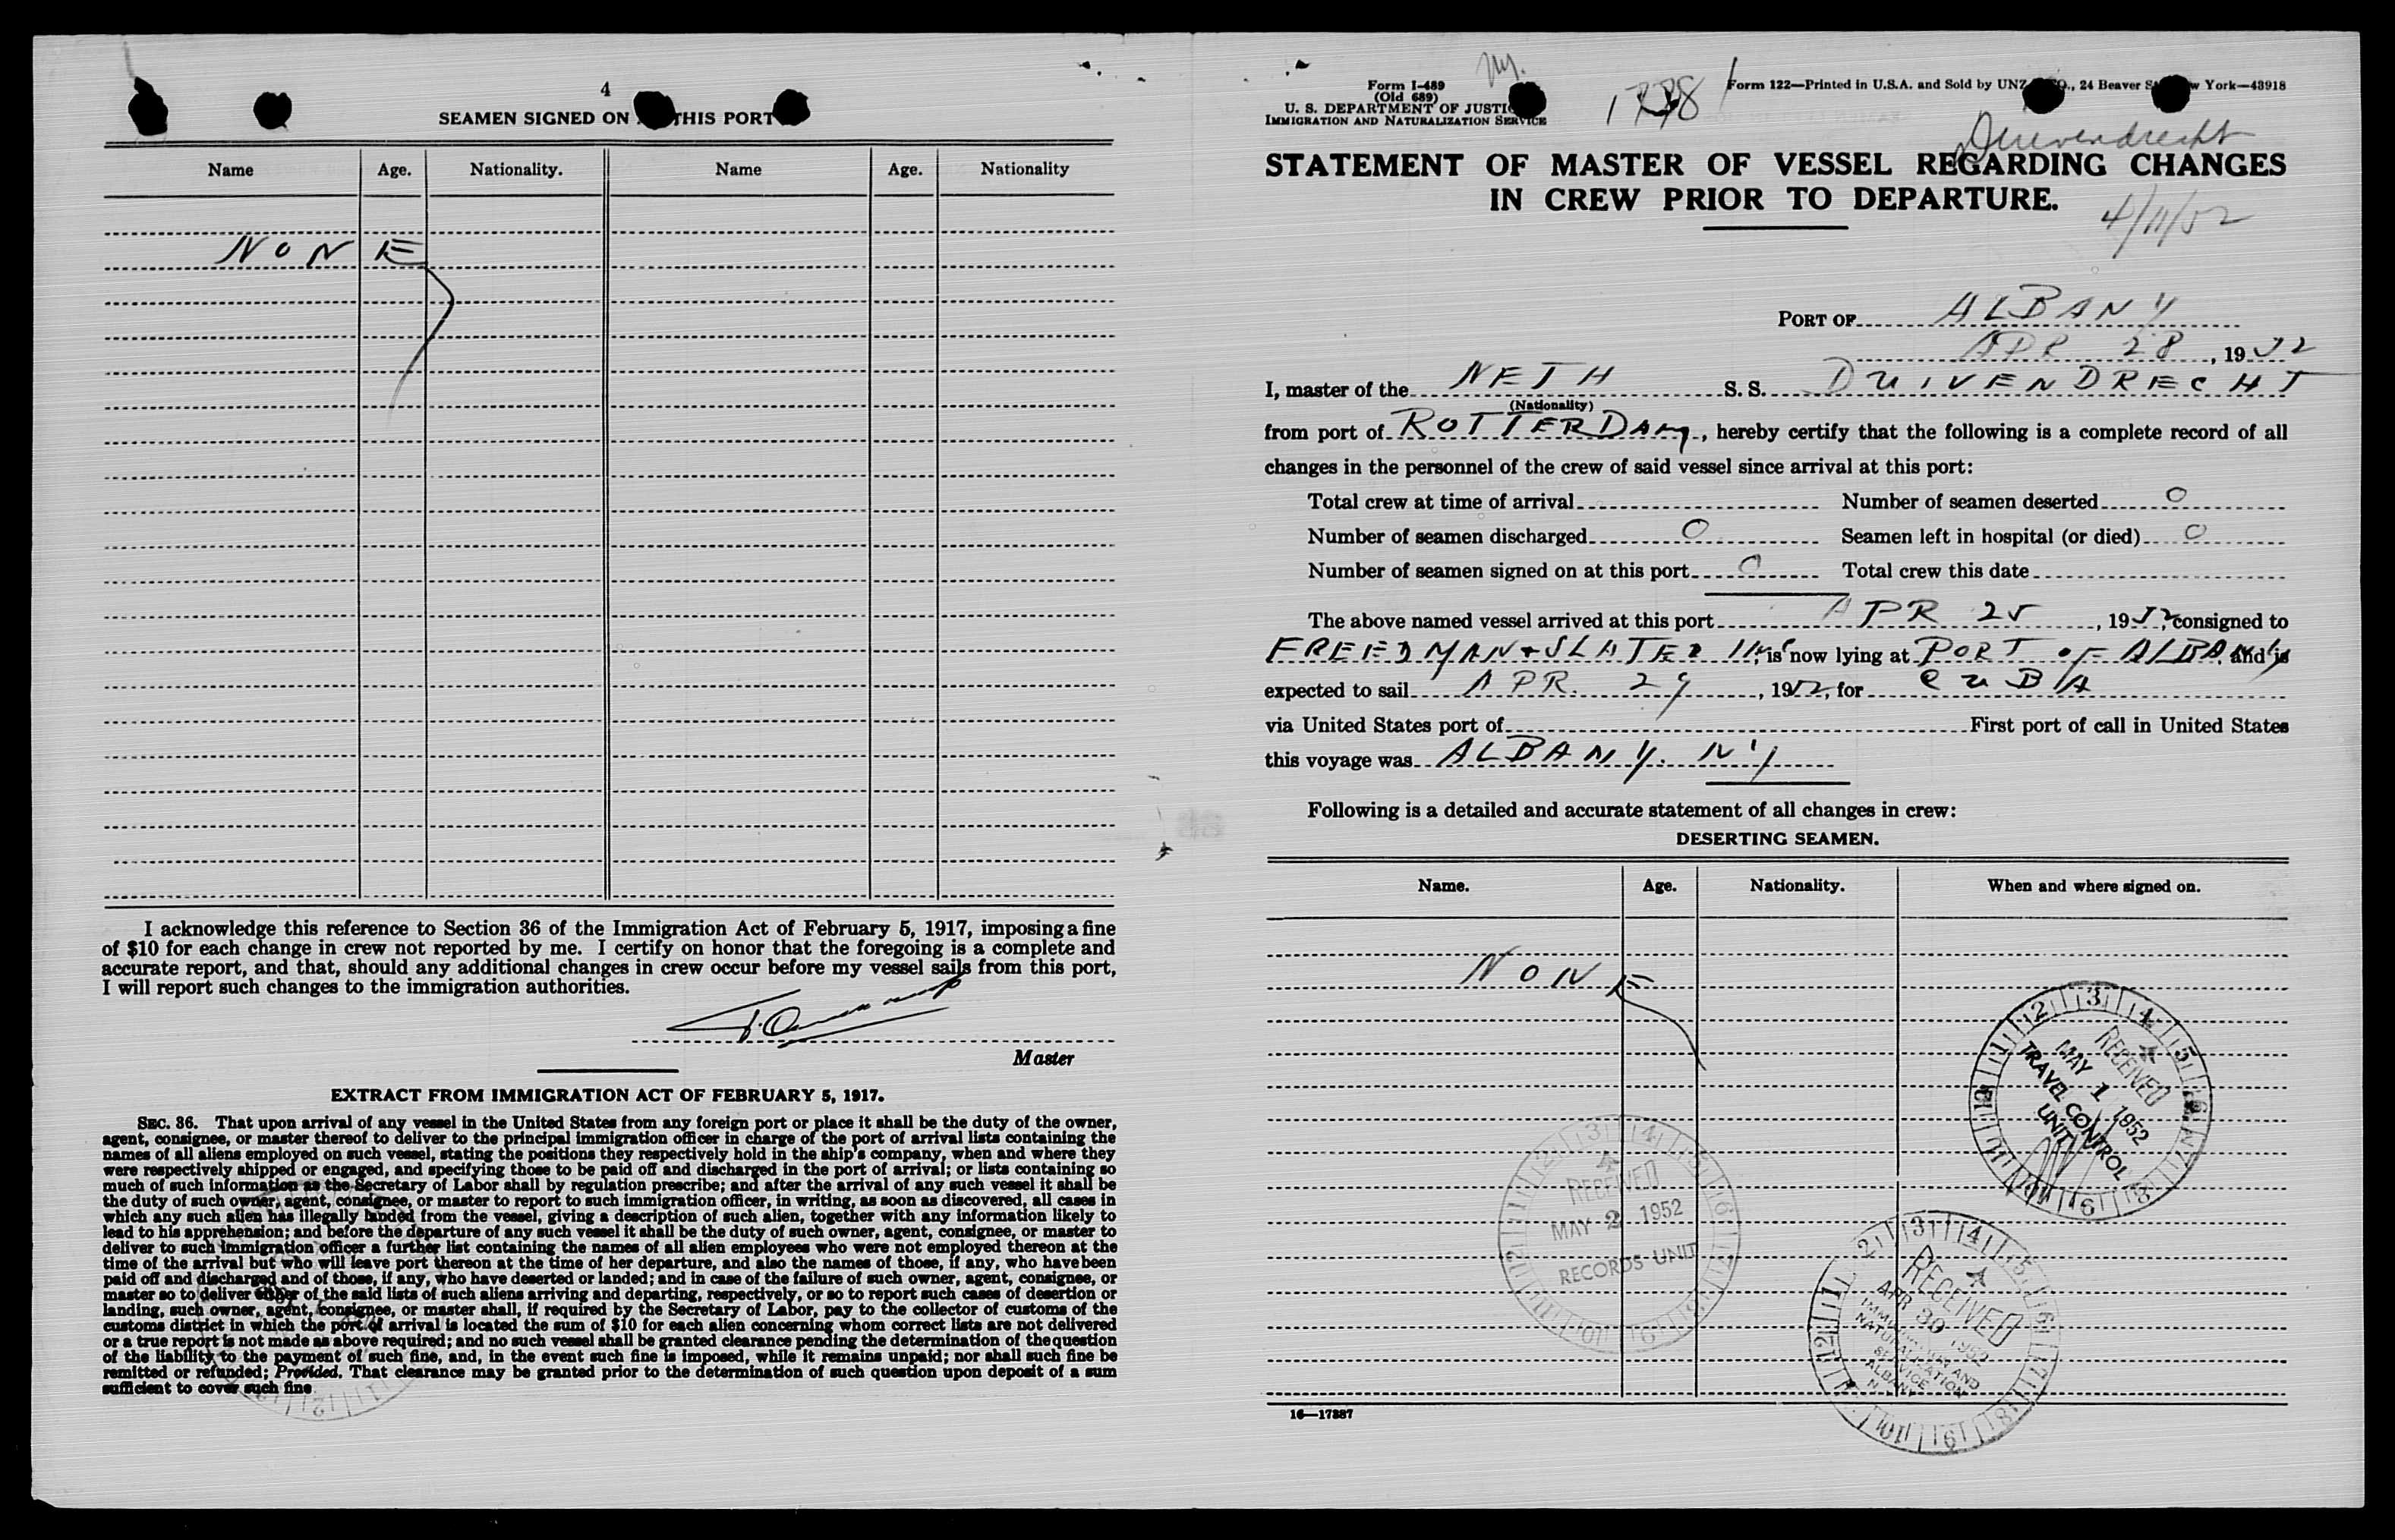 4
SEAMEN SIGNED ON THIS PORT
Name Age. Nationality. Name Age. Nationality
NONE
I acknowledge this reference to Section 36 of the Immigration Act of February 5, 1917, imposing a fine
of $10 for each change in crew not reported by me. I certify on honor that the foregoing is a complete and
accurate report, and that, should any additional changes in crew occur before my vessel sails from this port,
I will report such changes to the immigration authorities.
Master
EXTRACT FROM IMMIGRATION ACT OF FEBRUARY 5, 1917.
SEC. 36. That upon arrival of any vessel in the United States from any foreign port or place it shall be the duty of the owner,
agent, consignee, or master thereof to deliver to the principal immigration officer in charge of the port of arrival lists containing the
names of all aliens employed on such vessel, stating the positions they respectively hold in the ship's company, when and where they
were respectively shipped or engaged, and specifying those to be paid off and discharged in the port of arrival; or lists containing so
much of such information as the Secretary of Labor shall by regulation prescribe; and after the arrival of any such vessel it shall be
the duty of such owner, agent, consignee, or master to report to such immigration officer, in writing, as soon as discovered, all cases in
which any such alien has illegally landed from the vessel, giving a description of such alien, together with any information likely to
lead to his apprehension; and before the departure of any such vessel it shall be the duty of such owner, agent, consignee, or master to
deliver to such immigration officer a further list containing the names of all alien employees who were not employed thereon at the
time of the arrival but who will leave port thereon at the time of her departure, and also the names of those, if any, who have been
paid off and discharged and of those, if any, who have deserted or landed; and in case of the failure of such owner, agent, consignee, or
master so to deliver either of the said lists of such aliens arriving and departing, respectively, or so to report such cases of desertion or
landing, such owner, agent, consignee, or master shall, if required by the Secretary of Labor, pay to the collector of customs of the
customs district in which the port of arrival is located the sum of $10 for each alien concerning whom correct lists are not delivered
or a true report is not made as above required; and no such vessel shall be granted clearance pending the determination of the question
of the liability to the payment of such fine, and, in the event such fine is imposed, while it remains unpaid; nor shall such fine be
remitted or refunded; Provided, That clearance may be granted prior to the determination of such question upon deposit of a sum
sufficient to cover such fine
Form I-489
(Old 689)
U. S. DEPARTMENT OF JUSTI
IMMIGRATION AND NATURALIZATION SERVICE
Form 122—Printed in U.S.A. and Sold by UNZ ., 24 Beaver S w York—43918
Duivendrecht
STATEMENT OF MASTER OF VESSEL REGARDING CHANGES
IN CREW PRIOR TO DEPARTURE.
4/11/52
PORT OF ALBANY
APR 28, 1952
I, master of the NETH S. S. DUIVENDRECHT
(Nationality)
from port of ROTTERDAM, hereby certify that the following is a complete record of all
changes in the personnel of the crew of said vessel since arrival at this port:
Total crew at time of arrival Number of seamen deserted 0
Number of seamen discharged 0 Seamen left in hospital (or died) 0
Number of seamen signed on at this port 0 Total crew this date
The above named vessel arrived at this port APR 25, 1952, consigned to
FREEDMAN & SLATER INC is now lying at PORT OF ALBANY, and is
expected to sail APR. 29, 1952, for CUBA
via United States port of First port of call in United States
this voyage was ALBANY. NY
Following is a detailed and accurate statement of all changes in crew:
DESERTING SEAMEN.
Name. Age. Nationality. When and where signed on.
NONE
RECEIVED
MAY 1 1952
TRAVEL CONTROL
UNIT
RECEIVED
MAY 2 1952
RECORDS UNIT
RECEIVED
APR 30 1952
IMMIGRATION AND
NATURALIZATION
SERVICE
ALBANY
N.Y.
16—17387